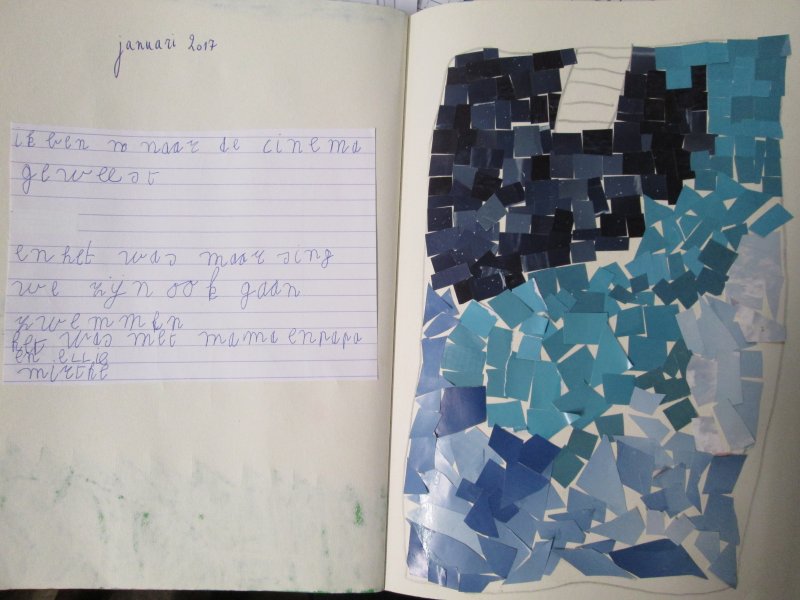 januari 2017
ik ben naar de cinema
geweest
en het was maar sing
we zijn ook gaan
zwemmen
het was met mama en papa
en
mirthe